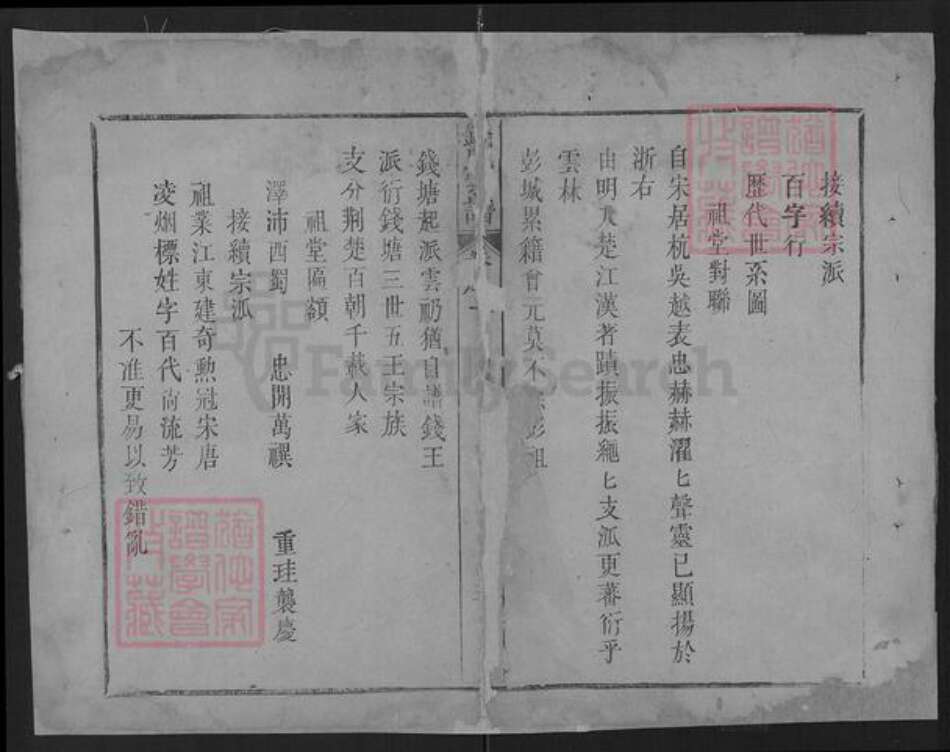 接續宗派
百字行
歷代世系圖
祖堂對聯
自宋居杭吳越表忠赫赫濯匕聲靈已顯揚於
浙右
由明入楚江漢著蹟振振繩匕支派更蕃衍乎
雲林
彭城累籍曾元莫不 彭祖
錢塘起派雲礽猶自譜錢王
派衍錢塘三世五王宗族
支分荆楚百朝千載人家
祖堂匾額
澤沛西蜀 忠開萬禩 重珪襲慶
接續宗派
祖業江東建奇勲冠宋唐
凌烟標姓字百代尚流芳
不准更易以致錯亂
FamilySearch